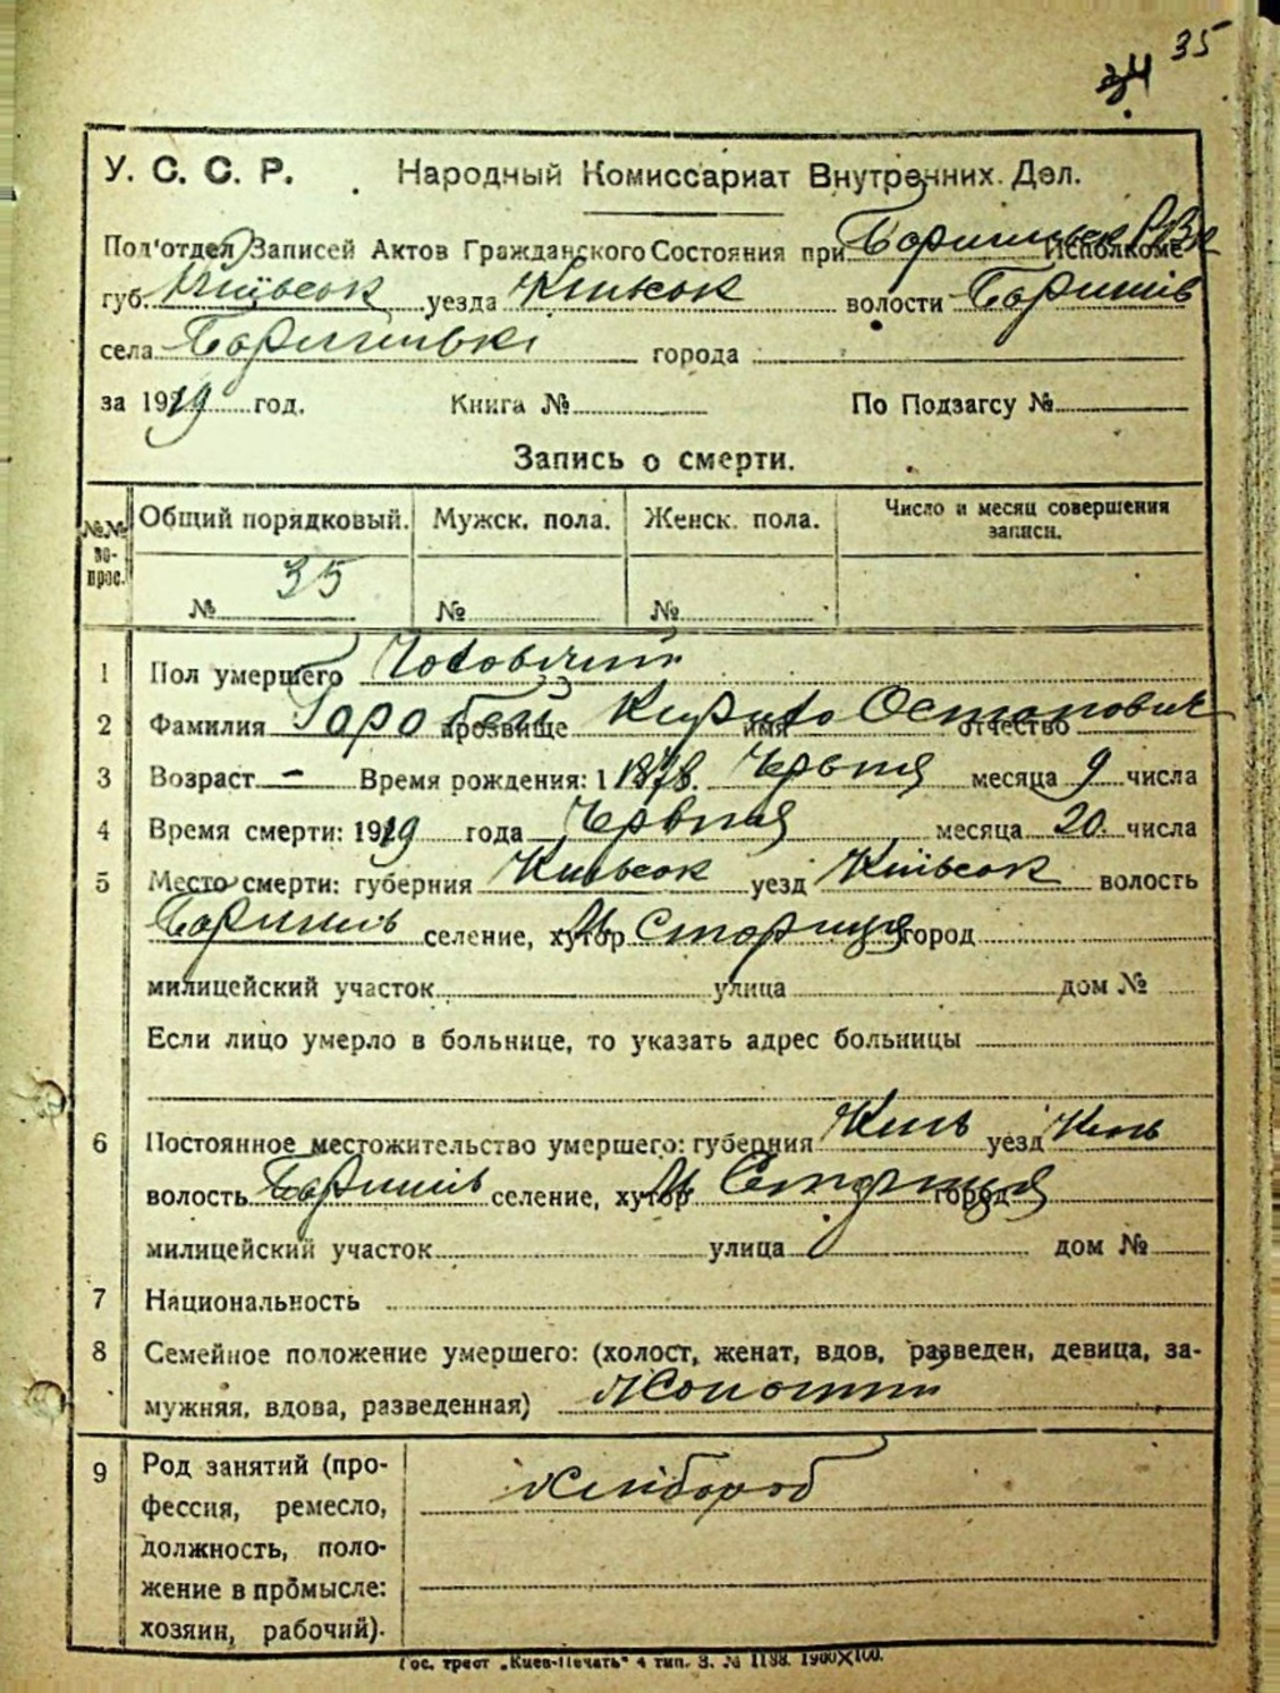 35
34
У. С. С. Р. Народный Комиссариат Внутренних Дел.
Под'отдел Записей Актов Гражданского Состояния при Исполкоме
губ. Київськ уезда Київськ волости Баришів
села Баришівкі города
за 1919 год. Книга № По Подзагсу №
Запись о смерти.
№№ во-прос. Общий порядковый. Мужск. пола. Женск. пола. Число и месяц совершения записи.
35
№ № №
1 Пол умершего Чоловічий
2 Фамилия Горобей прозвище Кирило имя Остапович отчество
3 Возраст — Время рождения: 1 1878. Червня месяца 9 числа
4 Время смерти: 1919 года Червня месяца 20 числа
5 Место смерти: губерния Київськ уезд Київськ волость
Баришів селение, хутор М Сториця город
милицейский участок улица дом №
Если лицо умерло в больнице, то указать адрес больницы
6 Постоянное местожительство умершего: губерния Київ уезд Київ
волость Баришів селение, хутор М Сториця город
милицейский участок улица дом №
7 Национальность
8 Семейное положение умершего: (холост, женат, вдов, разведен, девица, за-
мужняя, вдова, разведенная) Жонатий
9 Род занятий (про-
фессия, ремесло, хлібороб
должность, поло-
жение в промысле:
хозяин, рабочий).
Гос. трест „Киев-Печать" 4 тип. З. № 1198. 1900×100.